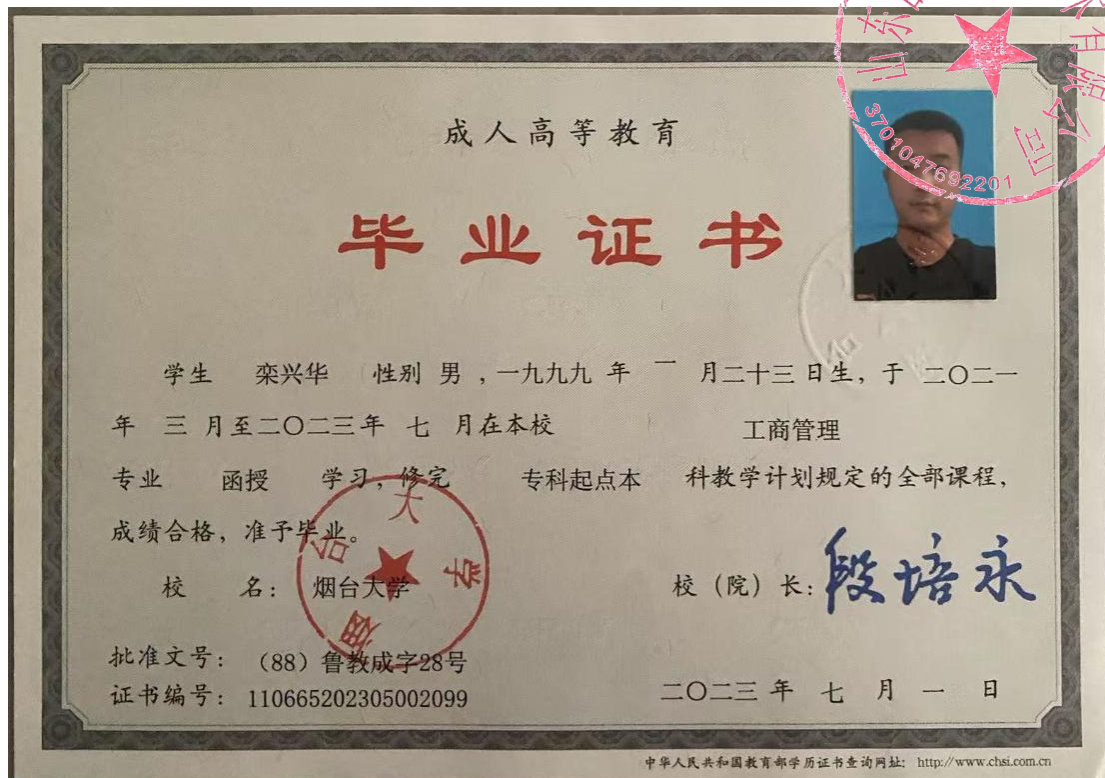 成人高等教育
毕业证书
学生 栾兴华 性别 男 ,一九九九 年 一 月二十三日生,于 二〇二一
年 三 月至二〇二三年 七 月在本校 工商管理
专业 函授 学习,修完 专科起点本 科教学计划规定的全部课程,
成绩合格,准予毕业。
校 名: 烟台大学 校(院)长: 段培永
批准文号: (88)鲁教成字28号
证书编号: 110665202305002099 二〇二三 年 七 月 一 日
中华人民共和国教育部学历证书查询网址: http://www.chsi.com.cn
烟台大学
山东
有限公司
3701047692201